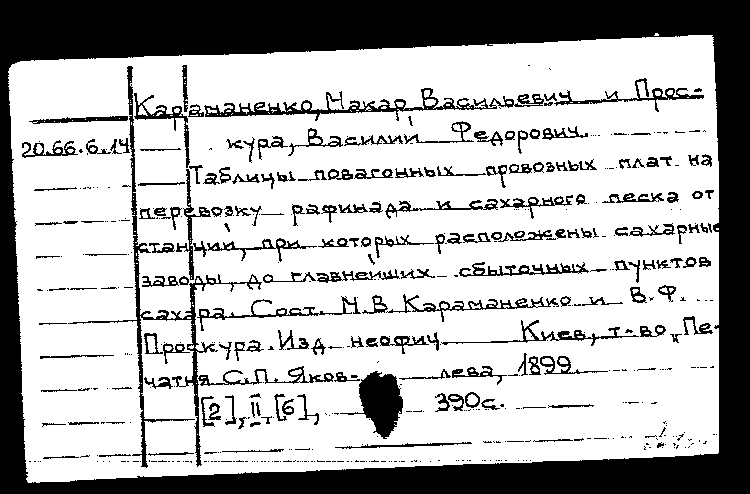 Караманенко, Макар Васильевич и Прос-
20.66.6.14 кура, Василий Федорович.
Таблицы повагонных провозных плат на
перевозку рафинада и сахарного песка от
станций, при которых расположены сахарные
заводы, до главнейших сбыточных пунктов
сахара. Сост. М.В. Караманенко и В.Ф.
Проскура. Изд. неофиц. Киев, т-во „Пе-
чатня С.П. Яков- лева, 1899.
[2], II, [6], 390с.